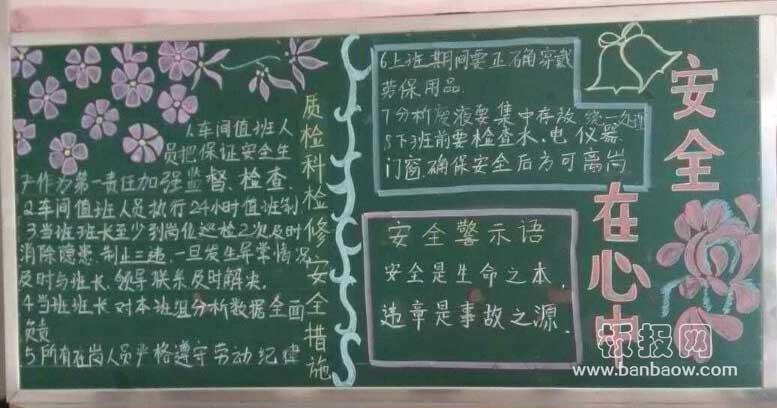 质检科检修安全措施
1.车间值班人
员把保证安全生
产作为第一责任加强监督、检查.
2车间值班人员执行24小时值班制
3当班班长至少到岗位巡检2次及时
消除隐患.制止三违.一旦发生异常情况
及时与班长.领导联系及时解决.
4当班班长对本班组分析数据全面
负责
5所有在岗人员严格遵守劳动纪律
6上班期间要正确穿戴
劳保用品.
7分析废液要集中存放.统一处理
8下班前要检查水、电、仪器
门窗.确保安全后方可离岗.
安全警示语
安全是生命之本,
违章是事故之源.
安全
在心中
板报网
www.banbaow.com